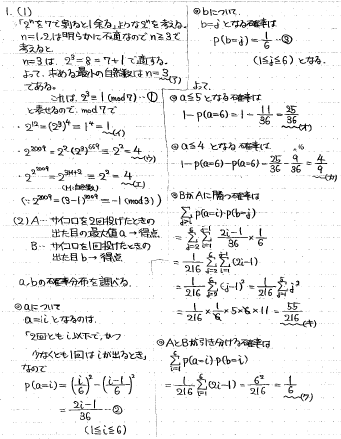 1. (1)
「2ⁿを7で割ると1余る」ような2ⁿを考える。
n=1,2は明らかに不適なのでn≧3で
考えると
n=3は、2³=8=7+1で適する。
よって、求める最小の自然数はn=3(ア)
である。
これは、2³≡1 (mod7)…①
と表せるので、mod7で
・2¹²=(2³)⁴≡1⁴=1(イ)
・2²⁰⁰⁹=2²·(2³)⁶⁶⁹≡2²=4(ウ)
・2^(2²⁰⁰⁹)=2^(3M+2)≡2²=4(エ)
(M:自然数)
(∵2²⁰⁰⁹=(3-1)²⁰⁰⁹≡-1(mod3))
(2) A… サイコロを2回投げたときの
出た目の最大値a→得点
B… サイコロを1回投げたときの
出た目b→得点
a,bの確率分布を調べる。
◎aについて
a=iとなるのは、
「2回ともi以下で、かつ
少なくとも1回はiが出るとき」
なので
p(a=i)=(i/6)²-(i-1/6)²
=2i-1/36…②
(1≦i≦6)
◎bについて、
b=jとなる確率は
p(b=j)=1/6…③
(1≦j≦6)となる。
よって、
◎a≦5となる確率は
1-p(a=6)=1-11/36=25/36(オ)
◎a≦4となる確率は
1-p(a=6)-p(a=5)=25/36-9/36=4/9(カ)
◎BがAに勝つ確率は
Σ p(a=i)·p(b=j)
=Σ Σ 2i-1/36×1/6
=1/216 Σ Σ(2i-1)
=1/216 Σ(j-1)²=1/216 Σ j²
=1/216×1/6×5×6×11=55/216(キ)
◎AとBが引き分ける確率は
Σ p(a=i)p(b=i)
=1/216 Σ(2i-1)=6²/216=1/6(ク)